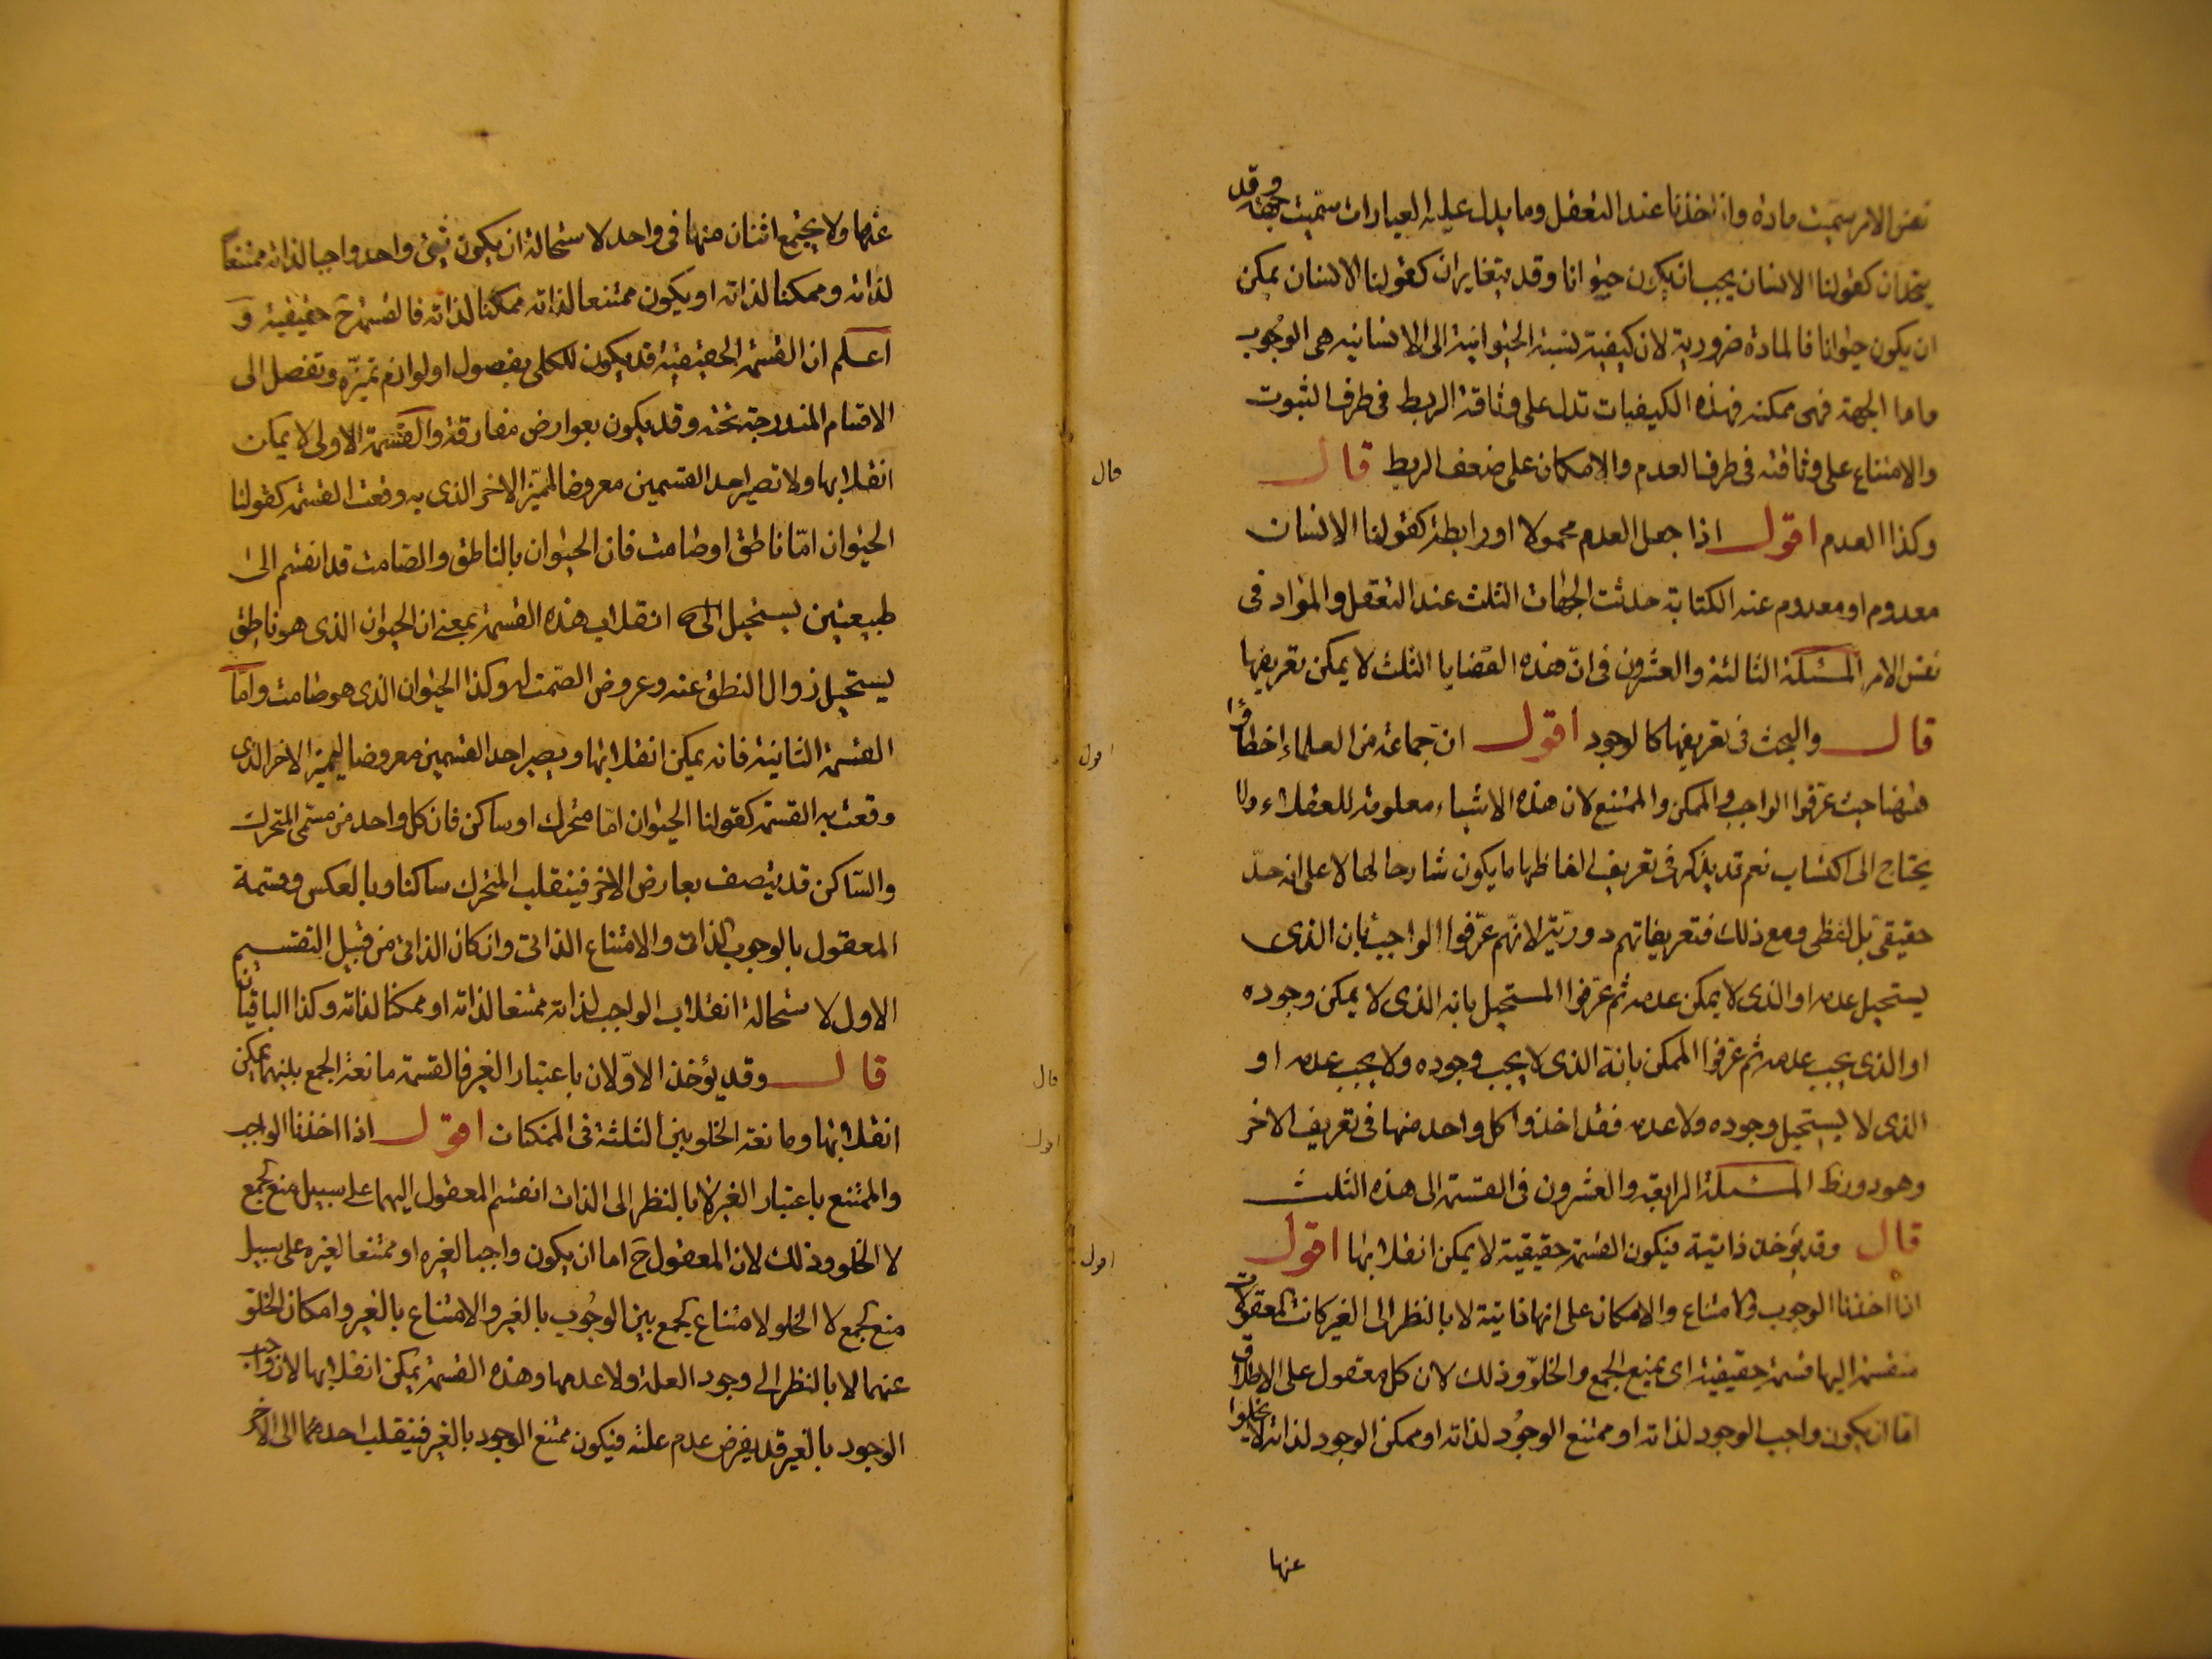 نفس الامر سميت مادة وان اخذنا عند التعقل وما يدل عليه العبارات سميت جهة وقد
يتحدان كقولنا الانسان يجب ان يكون حيوانا وقد يتغايران كقولنا الانسان يمكن
ان يكون حيوانا فالمادة ضرورية لان كيفية نسبة الحيوانية الى الانسانية هى الوجوب
واما الجهة فهى ممكنة فهذه الكيفيات تدل على وثاقة الربط فى طرف الثبوت
والامتناع على وثاقته فى طرف العدم والامكان على ضعف الربط قال
وكذا العدم اقول اذا جعل العدم محمولا او رابطة كقولنا الانسان
معدوم او معدوم عنه الكتابة حدثت الجهات الثلث عند التعقل والمواد فى
نفس الامر المسئلة الثالثة والعشرون فى انّ هذه القضايا الثلث لا يمكن تعريفها
قال والبحث فى تعريفها كالوجود اقول انّ جماعة من العلماء اخطاؤا
هنهنا حيث عرّفوا الواجب والممكن والممتنع لان هذه الاشياء معلومة للعقلاء ولا
يحتاج الى اكتساب نعم قد يذكر فى تعريف الفاظها ما يكون شارحا لها لا على انه حدّ
حقيقى بل لفظى ومع ذلك فتعريفاتهم دوريّة لانّهم عرّفوا الواجب بان الذى
يستحيل عدمه او الذى لا يمكن عدمه ثم عرّفوا المستحيل بانه الذى لا يمكن وجوده
او الذى يجب عدمه ثم عرّفوا الممكن بانه الذى لا يجب وجوده ولا يجب عدمه او
الذى لا يستحيل وجوده ولا عدمه فقد اخذوا كل واحد منها فى تعريف الاخر
وهو دور ظ المسئلة الرابعة والعشرون فى القسمة الى هذه الثلث
قال وقد يؤخذ ذاتية فيكون القسمة حقيقية لا يمكن انقلابها اقول
اذا اخذنا الوجوب والامتناع والامكان على انها ذاتية لا بالنظر الى الغير كانت المعقولات
منقسمة اليها قسمة حقيقية اى يمنع الجمع والخلوّ وذلك لان كل معقول على الاطلاق
امّا ان يكون واجب الوجود لذاته او ممتنع الوجود لذاته او ممكن الوجود لذاته لا يخلوا
عنها
قال
اقول
اقول
عنها ولا يجتمع اثنان منها فى واحد لاستحالة ان يكون شىء واحد واجبا لذاته ممتنعا
لذاته وممكنا لذاته او يكون ممتنعا لذاته ممكنا لذاته فالقسمة ح حقيقية و
اعلم ان القسمة الحقيقية قد يكون للكلى بفصول او لوازم تميّزه وتفصل الى
الاقسام المندرجة تحته وقد يكون بعوارض مفارقة والقسمة الاولى لا يمكن
انقلابها ولا تصير احد القسمين معروضا لمميّز الاخر الذى به وقعت القسمة كقولنا
الحيوان امّا ناطق او صامت فان الحيوان بالناطق والصامت قد انقسم الى
طبيعتين يستحيل انقلاب هذه القسمة بمعنى ان الحيوان الذى هو ناطق
يستحيل زوال النطق عنه وعروض الصمت له وكذا الحيوان الذى هو صامت وامّا
القسمة الثانية فانه يمكن انقلابها ويصير احد القسمين معروضا لمميز الاخر الذى
وقعت به القسمة كقولنا الحيوان امّا متحرك او ساكن فان كل واحد من قسمى المتحرك
والساكن قد يتصف بعارض الاخر فينقلب المتحرك ساكنا وبالعكس وقسمة
المعقول بالوجوب الذاتى والامتناع الذاتى وامكان الذاتى من قبيل التقسيم
الاول لاستحالة انقلاب الواجب لذاته ممتنعا لذاته او ممكنا لذاته وكذا الباقيان
قال وقد يؤخذ الاوّلان باعتبار الغير فالقسمة مانعة الجمع بينهما يمكن
انقلابها ومانعة الخلو بين الثلثة فى الممكنات اقول اذا اخذنا الواجب
والممتنع باعتبار الغير لا بالنظر الى الذات انقسم المعقول اليهما على سبيل منع الجمع
لا الخلو وذلك لان المعقول ح اما ان يكون واجبا لغيره او ممتنعا لغيره على سبيل
منع الجمع لا الخلو لامتناع الجمع بين الوجوب بالغير والامتناع بالغير وامكان الخلوّ
عنهما لا بالنظر الى وجود العلة ولا عدمها وهذه القسمة يمكن انقلابها لان واجب
الوجود بالغير قد يفرض عدم علته فيكون ممتنع الوجود بالغير فينقلب احدهما الى الاخر
قال
اقول